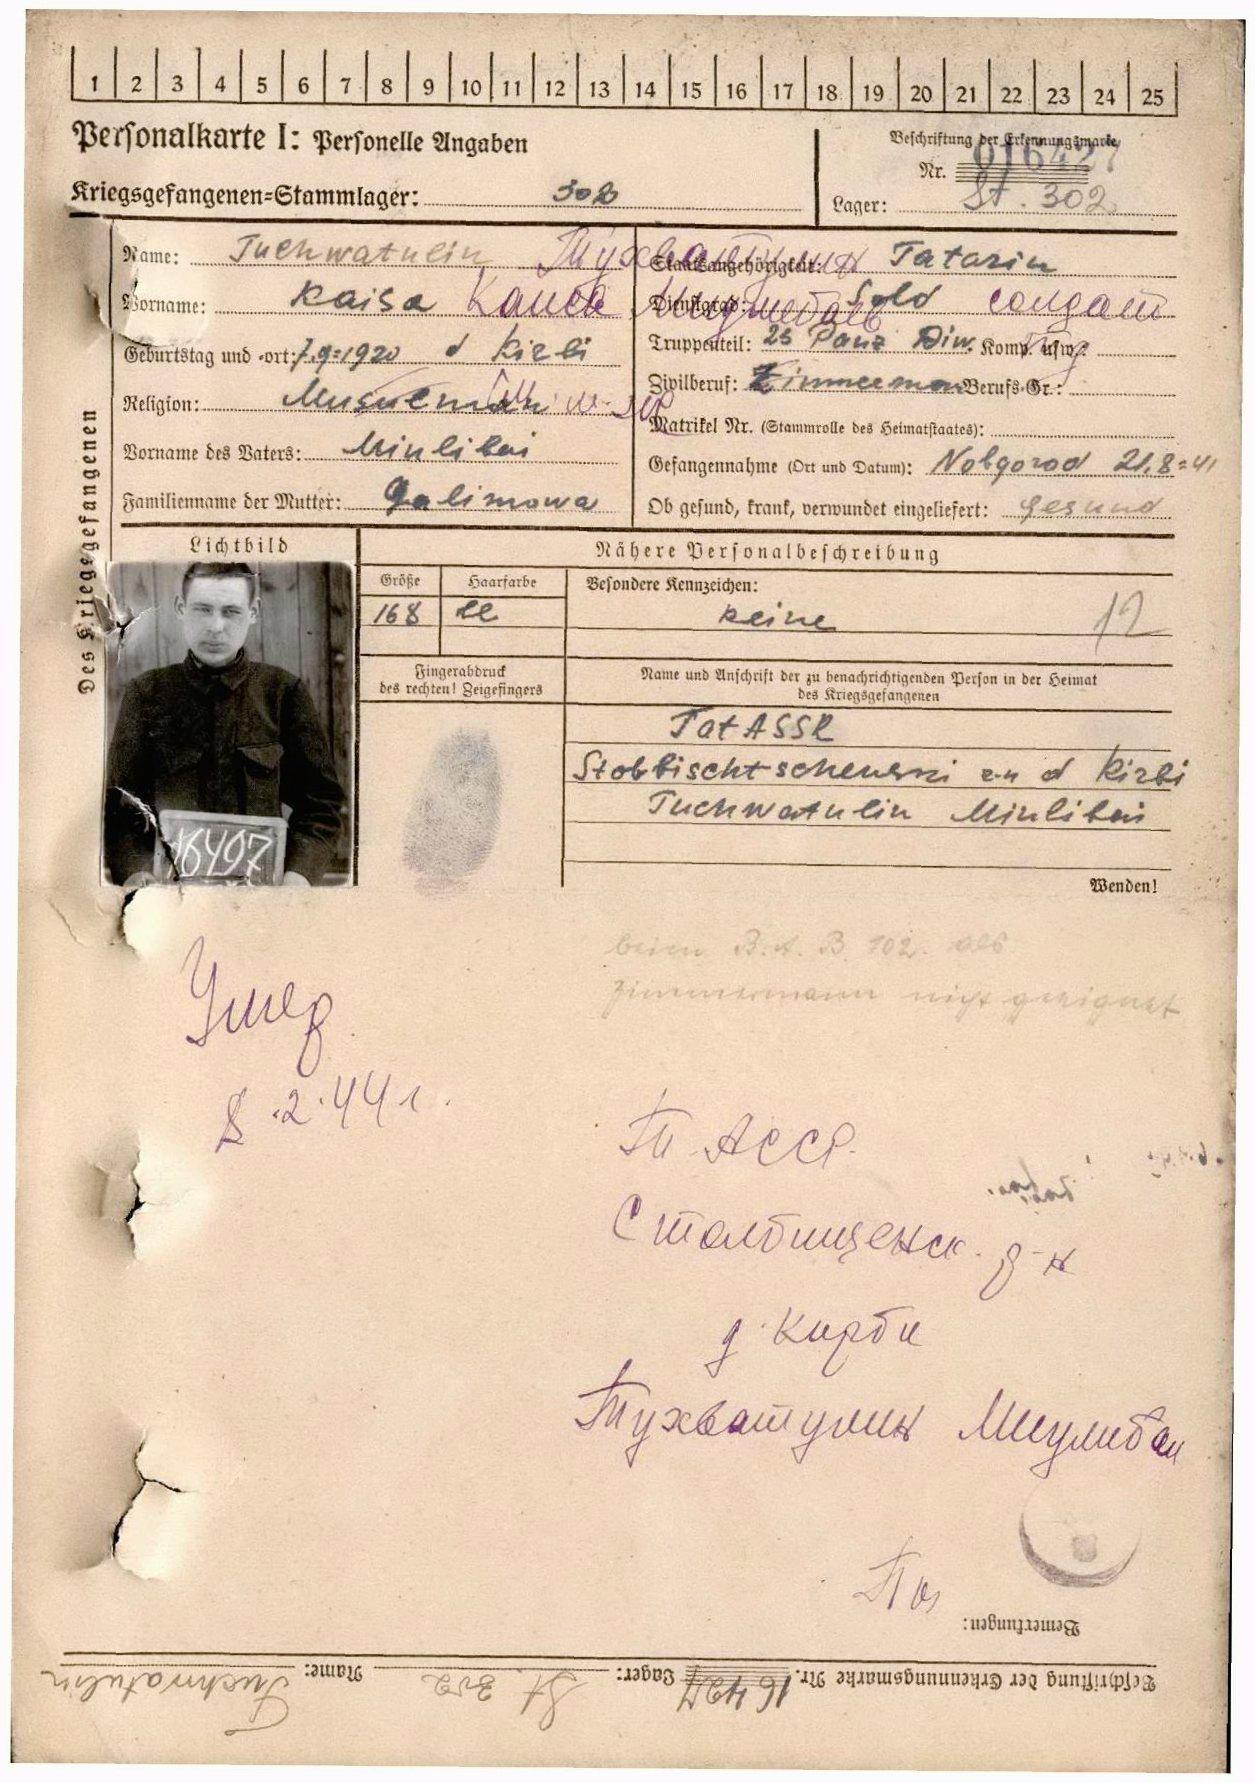 1 2 3 4 5 6 7 8 9 10 11 12 13 14 15 16 17 18 19 20 21 22 23 24 25
Personalkarte I: Personelle Angaben
Beschriftung der Erkennungsmarke
Nr. 016427
Kriegsgefangenen-Stammlager: 302
Lager: St. 302
Des Kriegsgefangenen
Name: Tuchwatulin Тухватулин
Staatsangehörigkeit: Tatarin
Vorname: Kaisa
Dienstgrad: Sold солдат
Geburtstag und -ort: 7.9.1920 d Kirbi
Truppenteil: 25 Panz Diw. Komp. usw.:
Religion: Musulman
Zivilberuf: Zimmerman Berufs-Gr.:
Matrikel Nr. (Stammrolle des Heimatstaates):
Vorname des Vaters: Minlibai
Gefangennahme (Ort und Datum): Nobgorod 21.8.41
Familienname der Mutter: Galimowa
Ob gesund, krank, verwundet eingeliefert: gesund
Lichtbild
Nähere Personalbeschreibung
Größe
Haarfarbe
Besondere Kennzeichen:
168
keine
12
Fingerabdruck
des rechten! Zeigefingers
Name und Anschrift der zu benachrichtigenden Person in der Heimat
des Kriegsgefangenen
TatASSR
Stobbischtschenski d Kirbi
Tuchwatulin Minlibai
Wenden!
beim B.A.B. 102. als
Zimmermann nicht geeignet
Умер
8.2.44 г.
Т АССР.
Столбищенск. р-н
д. Кирби
Тухватулин Миулибай
Bemerkungen:
Beschriftung der Erkennungsmarke Nr. 16427 Lager: St. 302 Name: Tuchwatulin